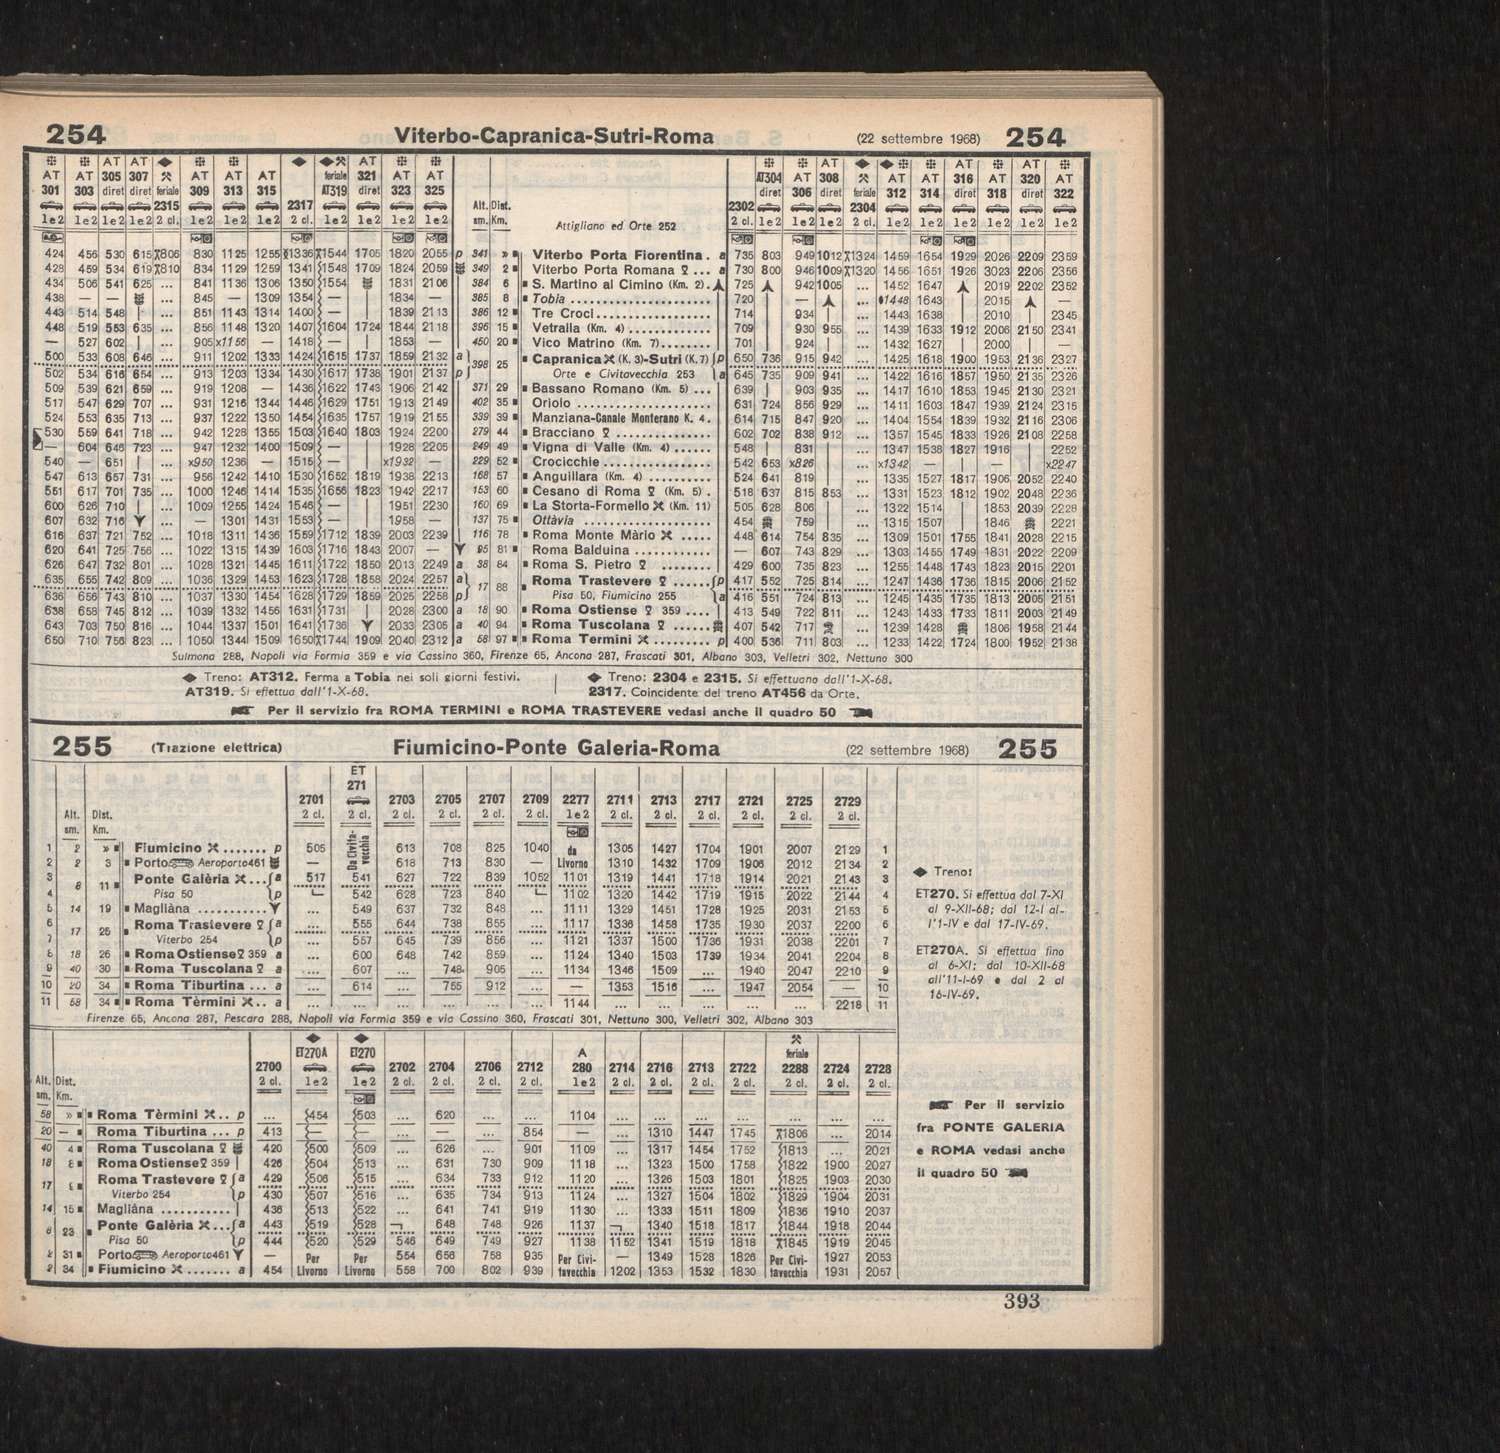 254 Viterbo-Capranica-Sutri-Roma (22 settembre 1968) 254
AT AT AT AT feriale AT AT AT AT
AT 305 307 AT AT AT feriale 321 AT AT AT304 AT 308 AT AT 316 AT 320 AT
301 303 diret diret 2315 309 313 315 2317 AT319 diret 323 325 Alt. Dist. 2302 diret 306 diret feriale 2304 312 314 diret 318 diret 322
1e2 1e2 1e2 1e2 2 cl. 1e2 1e2 1e2 2 cl. 1e2 1e2 1e2 1e2 sm. Km. Attigliano ed Orte 252 2 cl. 1e2 1e2 1e2 2 cl. 1e2 1e2 1e2 1e2 1e2 1e2
424 456 530 615 806 830 1125 1255 1336 1544 1705 1820 2055 p 341 » Viterbo Porta Fiorentina . a 735 803 949 1012 1324 1459 1654 1929 2026 2209 2359
428 459 534 619 810 834 1129 1259 1341 1548 1709 1824 2059 349 2 Viterbo Porta Romana ... a 730 800 946 1009 1320 1456 1651 1926 3023 2206 2356
434 506 541 625 ... 841 1136 1306 1350 1554 1831 2106 384 6 S. Martino al Cimino (Km. 2). 725 942 1005 ... 1452 1647 2019 2202 2352
438 — — ... 845 — 1309 1354 — 1834 — 385 8 Tobia 720 — ... 1448 1643 2015 —
443 514 548 | ... 851 1143 1314 1400 — | 1839 2113 386 12 Tre Croci 714 934 ... 1443 1638 2010 2345
448 519 553 635 ... 856 1148 1320 1407 1604 1724 1844 2118 396 15 Vetralla (Km. 4) 709 930 955 ... 1439 1633 1912 2006 2150 2341
— 527 602 | ... 905 x1156 — 1418 — | 1853 — 450 20 Vico Matrino (Km. 7) 701 924 | ... 1432 1627 | 2000 — |
500 533 608 646 ... 911 1202 1333 1424 1615 1737 1859 2132 a 398 25 Capranica (K. 3)-Sutri (K. 7) p 650 736 915 942 ... 1425 1618 1900 1953 2136 2327
502 534 616 654 ... 913 1203 1334 1430 1617 1738 1901 2137 p Orte e Civitavecchia 253 a 645 735 909 941 ... 1422 1616 1857 1950 2135 2326
509 539 621 659 ... 919 1208 — 1436 1622 1743 1906 2142 371 29 Bassano Romano (Km. 5) ... 639 | 903 935 ... 1417 1610 1853 1945 2130 2321
517 547 629 707 ... 931 1216 1344 1446 1629 1751 1913 2149 402 35 Oriolo 631 724 856 929 ... 1411 1603 1847 1939 2124 2315
524 553 635 713 ... 937 1222 1350 1454 1635 1757 1919 2155 339 39 Manziana-Canale Monterano K. 4. 614 715 847 920 ... 1404 1554 1839 1932 2116 2306
530 559 641 718 ... 942 1228 1355 1503 1640 1803 1924 2200 279 44 Bracciano 602 702 838 912 ... 1357 1545 1833 1926 2108 2258
— 604 646 723 ... 947 1232 1400 1509 — | 1928 2205 249 49 Vigna di Valle (Km. 4) 548 | 831 ... 1347 1538 1827 1916 | 2252
540 — 651 | ... x950 1236 — 1515 — | x1932 — 229 52 Crocicchie 542 653 x826 | ... x1342 — | — | x2247
547 613 657 731 ... 956 1242 1410 1530 1652 1819 1938 2213 168 57 Anguillara (Km. 4) 524 641 819 | ... 1335 1527 1817 1906 2052 2240
551 617 701 735 ... 1000 1246 1414 1535 1656 1823 1942 2217 153 60 Cesano di Roma (Km. 5) . 518 637 815 853 ... 1331 1523 1812 1902 2048 2236
600 626 710 | ... 1009 1255 1424 1546 — | 1951 2230 160 69 La Storta-Formello (Km. 11) 505 628 806 | ... 1322 1514 | 1853 2039 2228
607 632 716 ... — 1301 1431 1553 — | 1958 — 137 75 Ottàvia 454 759 | ... 1315 1507 | 1846 2221
616 637 721 752 ... 1018 1311 1436 1559 1712 1839 2003 2239 116 78 Roma Monte Màrio ..... 448 614 754 835 ... 1309 1501 1755 1841 2028 2215
620 641 725 756 ... 1022 1315 1439 1603 1716 1843 2007 — 95 81 Roma Balduina — 607 743 829 ... 1303 1455 1749 1831 2022 2209
626 647 732 801 ... 1028 1321 1445 1611 1722 1850 2013 2249 a 38 84 Roma S. Pietro 429 600 735 823 ... 1255 1448 1743 1823 2015 2201
635 655 742 809 ... 1036 1329 1453 1623 1728 1858 2024 2257 a 17 88 Roma Trastevere ...... p 417 552 725 814 ... 1247 1436 1736 1815 2006 2152
636 656 743 810 ... 1037 1330 1454 1628 1729 1859 2025 2258 p Pisa 50, Fiumicino 255 a 416 551 724 813 ... 1245 1435 1735 1813 2005 2151
638 658 745 812 ... 1039 1332 1456 1631 1731 | 2028 2300 a 18 90 Roma Ostiense 359 .... 413 549 722 811 ... 1243 1433 1733 1811 2003 2149
643 703 750 816 ... 1044 1337 1501 1641 1736 2033 2305 a 40 94 Roma Tuscolana ...... 407 542 717 ... 1239 1428 1806 1958 2144
650 710 756 823 ... 1050 1344 1509 1650 1744 1909 2040 2312 a 58 97 Roma Termini ......... p 400 536 711 803 ... 1233 1422 1724 1800 1952 2138
Sulmona 288, Napoli via Formia 359 e via Cassino 360, Firenze 65, Ancona 287, Frascati 301, Albano 303, Velletri 302, Nettuno 300
◆ Treno: AT312. Ferma a Tobia nei soli giorni festivi.
AT319. Si effettua dall'1-X-68.
◆ Treno: 2304 e 2315. Si effettuano dall'1-X-68.
2317. Coincidente del treno AT456 da Orte.
Per il servizio fra ROMA TERMINI e ROMA TRASTEVERE vedasi anche il quadro 50
255 (Trazione elettrica) Fiumicino-Ponte Galeria-Roma (22 settembre 1968) 255
ET
271
Alt. Dist. 2701 2703 2705 2707 2709 2277 2711 2713 2717 2721 2725 2729
sm. Km. 2 cl. 2 cl. 2 cl. 2 cl. 2 cl. 2 cl. 1e2 2 cl. 2 cl. 2 cl. 2 cl. 2 cl. 2 cl.
1 2 » Fiumicino ....... p 505 Da Civitavecchia 613 708 825 1040 da 1305 1427 1704 1901 2007 2129 1
2 2 3 Porto Aeroporto 461 — 618 713 830 — Livorno 1310 1432 1709 1906 2012 2134 2
3 8 11 Ponte Galèria ... a 517 541 627 722 839 1052 1101 1319 1441 1718 1914 2021 2143 3
4 Pisa 50 p 542 628 723 840 1102 1320 1442 1719 1915 2022 2144 4
5 14 19 Magliàna ... 549 637 732 848 ... 1111 1329 1451 1728 1925 2031 2153 5
6 17 25 Roma Trastevere a ... 555 644 738 855 ... 1117 1336 1458 1735 1930 2037 2200 6
7 Viterbo 254 p ... 557 645 739 856 ... 1121 1337 1500 1736 1931 2038 2201 7
8 18 26 Roma Ostiense 359 a ... 600 648 742 859 ... 1124 1340 1503 1739 1934 2041 2204 8
9 40 30 Roma Tuscolana a ... 607 ... 748 905 ... 1134 1346 1509 ... 1940 2047 2210 9
10 20 34 Roma Tiburtina ... a ... 614 ... 755 912 ... — 1353 1516 ... 1947 2054 — 10
11 58 34 Roma Tèrmini .. a ... ... ... ... ... ... 1144 ... ... ... ... ... 2218 11
Firenze 65, Ancona 287, Pescara 288, Napoli via Formia 359 e via Cassino 360, Frascati 301, Nettuno 300, Velletri 302, Albano 303
◆ Treno:
ET270. Si effettua dal 7-XI
al 9-XII-68; dal 12-I al-
l'1-IV e dal 17-IV-69.
ET270A. Si effettua fino
al 6-XI; dal 10-XII-68
all'11-I-69 e dal 2 al
16-IV-69.
ET270A ET270 A feriale
Alt. Dist. 2700 2702 2704 2706 2712 280 2714 2716 2718 2722 2288 2724 2728
sm. Km. 2 cl. 1e2 1e2 2 cl. 2 cl. 2 cl. 2 cl. 1e2 2 cl. 2 cl. 2 cl. 2 cl. 2 cl. 2 cl. 2 cl.
58 » Roma Tèrmini .. p ... 454 503 ... 620 ... ... 1104 ... ... ... ... ... ... ...
20 — Roma Tiburtina ... p 413 — — ... — ... 854 — ... 1310 1447 1745 1806 ... 2014
40 4 Roma Tuscolana 420 500 509 ... 626 ... 901 1109 ... 1317 1454 1752 1813 ... 2021
18 8 Roma Ostiense 359 426 504 513 ... 631 730 909 1118 ... 1323 1500 1758 1822 1900 2027
17 Roma Trastevere a 429 506 515 ... 634 733 912 1120 ... 1326 1503 1801 1825 1903 2030
Viterbo 254 p 430 507 516 ... 635 734 913 1124 ... 1327 1504 1802 1829 1904 2031
14 15 Magliàna 436 513 522 ... 641 741 919 1130 ... 1333 1511 1809 1836 1910 2037
8 23 Ponte Galèria ... a 443 519 528 648 748 926 1137 1340 1518 1817 1844 1918 2044
Pisa 50 p 444 520 529 546 649 749 927 1138 1152 1341 1519 1818 1845 1919 2045
2 31 Porto Aeroporto 461 — Per Per 554 656 758 935 Per Civi- — 1349 1528 1826 Per Civi- 1927 2053
2 34 Fiumicino ....... a 454 Livorno Livorno 558 700 802 939 tavecchia 1202 1353 1532 1830 tavecchia 1931 2057
Per il servizio
fra PONTE GALERIA
e ROMA vedasi anche
il quadro 50
393